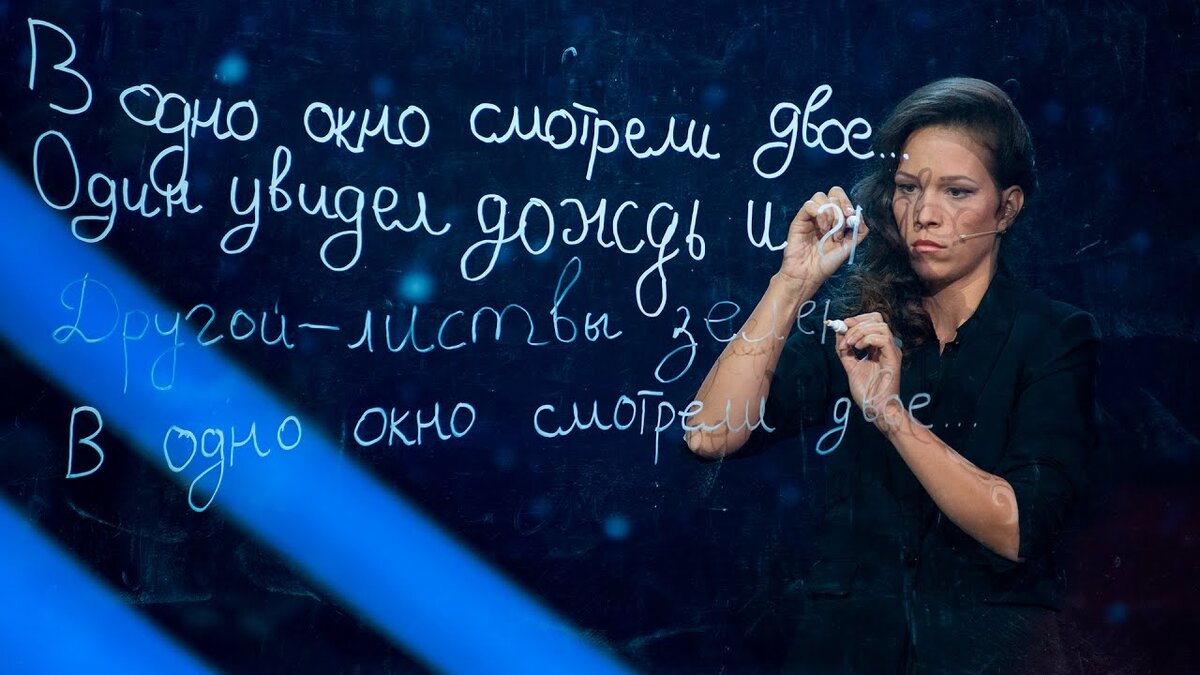 В одно окно смотрели двое...
Один увидел дождь и
Другой-листвы
В одно окно смотрели двое...